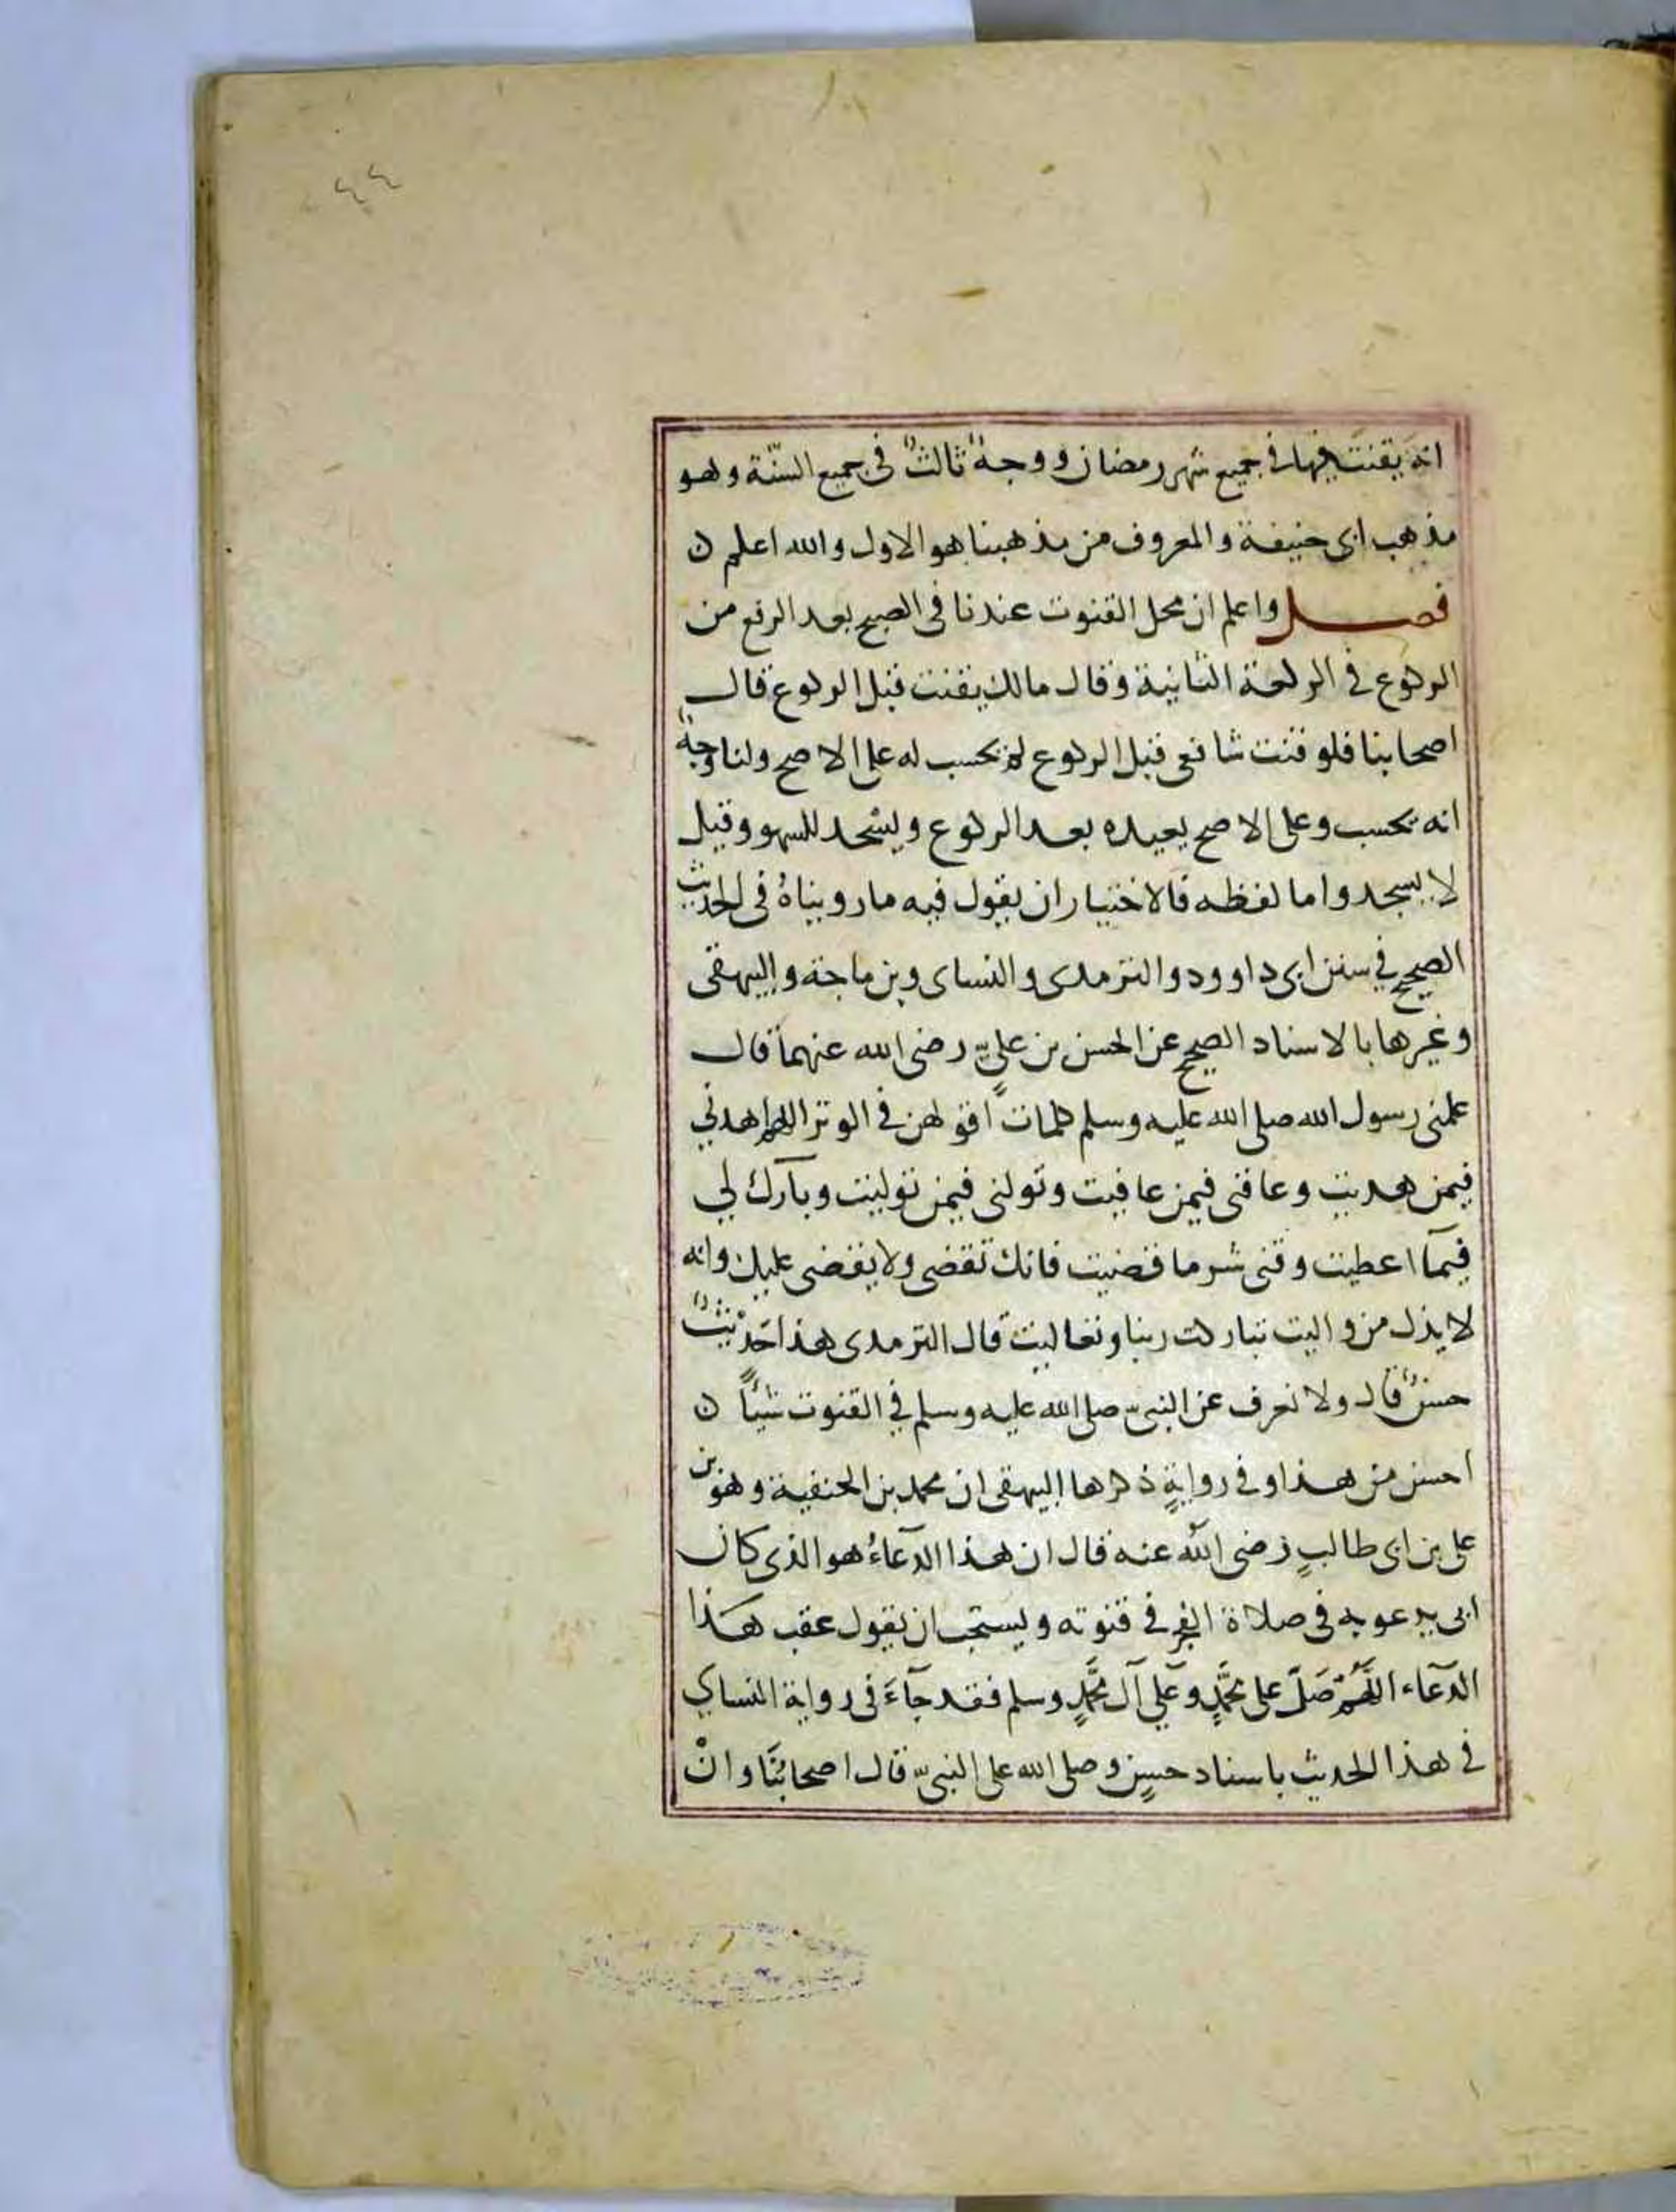 ٤٤
انه يقنت فيها في جميع شهر رمضان ووجهٌ ثالثٌ في جميع السّنة وهو
مذهب ابى حنيفة والمعروف من مذهبنا هو الاول والله اعلم ن
فصل واعلم ان محل القنوت عندنا فى الصبح بعد الرفع من
الركوع في الركعة الثانية وقال مالك يقنت قبل الركوع قال
اصحابنا فلو قنت شافعى قبل الركوع لم يحسب له على الاصح ولنا وجهٌ
انه يحسب وعلى الاصح يعيده بعد الركوع ويسجد للسهو وقيل
لا يسجد واما لفظه فالاختيار ان يقول فيه ما رويناهُ فى الحديث
الصحيح في سنن ابى داوود والترمدى والنساى وبن ماجة والبيهقى
وغيرها بالاسناد الصحيح عن الحسن بن عليٍّ رضى الله عنهما قال
علمنى رسول الله صلى الله عليه وسلم كلماتٍ اقولهن في الوتر اللهم اهدني
فيمن هديت وعافنى فيمن عافيت وتولنى فيمن توليت وبارك لي
فيمآ اعطيت وقنى شر ما قضيت فانك تقضى ولا يقضى عليك وانه
لا يذل من واليت تباركت ربنا وتعاليت قال الترمدى هذا حديثٌ
حسنٌ قال ولا نعرف عن النبىّ صلى الله عليه وسلم في القنوت شيأً ن
احسن من هذا وفي روايةٍ ذكرها البيهقى ان محمد بن الحنفية وهو بن
على بن ابى طالبٍ رضى الله عنه قال ان هذا الدعآءُ هو الذى كان
ابى يدعو به فى صلاة الفجر في قنوته ويستحب ان يقول عقب هذا
الدعآء اللَّهُمَّ صَلِّ على محَمَّدٍ وعَلي آل محَمَّدٍ وسلم فقد جآءَ فى رواية النساي
في هذا الحديث باسناد حسنٍ وصلى الله على النبىّ قال اصحابُنَا وانْ